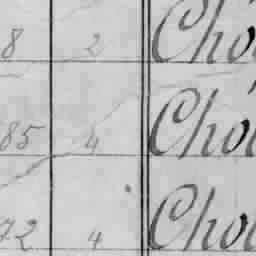 8 2 Chó
85 4 Chó
72 4 Cho